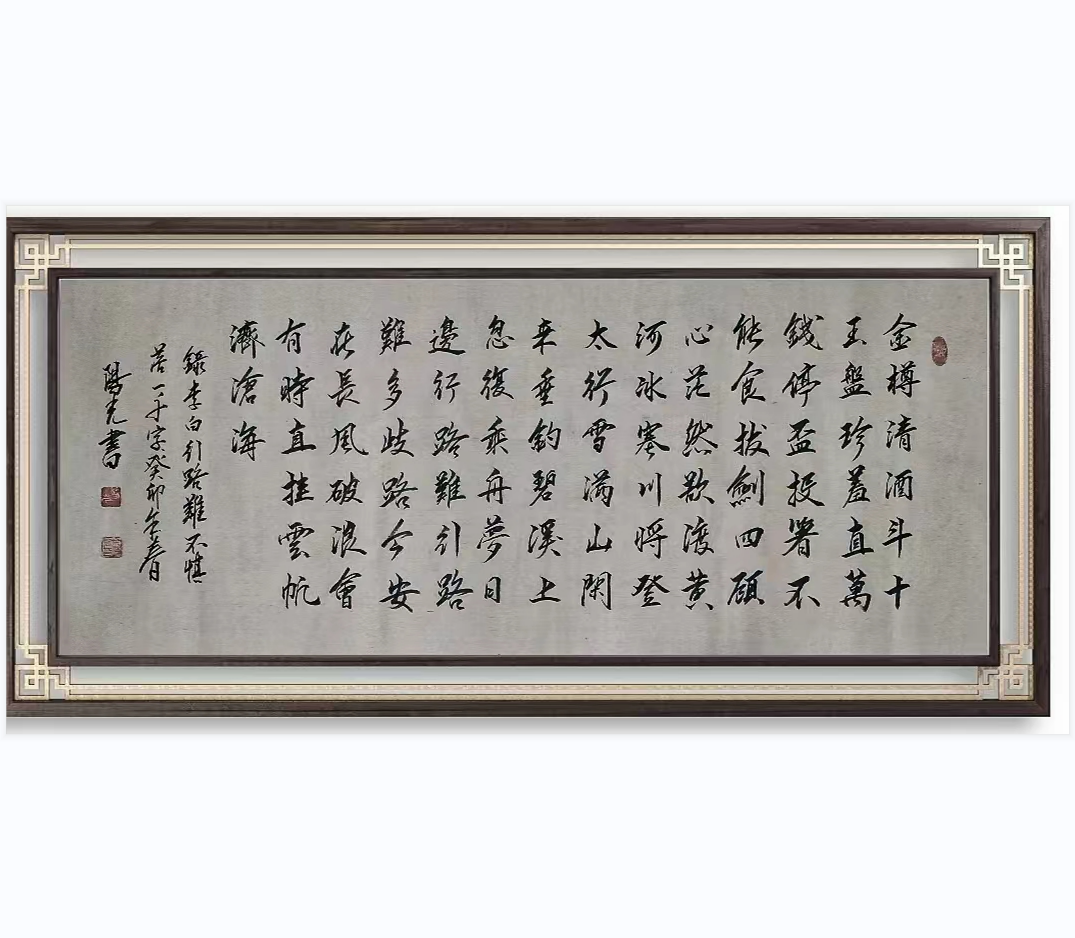 金樽清酒斗十
玉盤珍羞直萬
錢停盃投署不
能食拔劍四顧
心茫然欲渡黃
河冰塞川將登
太行雪滿山閑
来垂釣碧溪上
忽復乘舟夢日
邊行路難行路
難多歧路今安
在長風破浪會
有時直挂雲帆
濟滄海
錄李白行路難不慎
落一千字癸卯年春月
陽光書